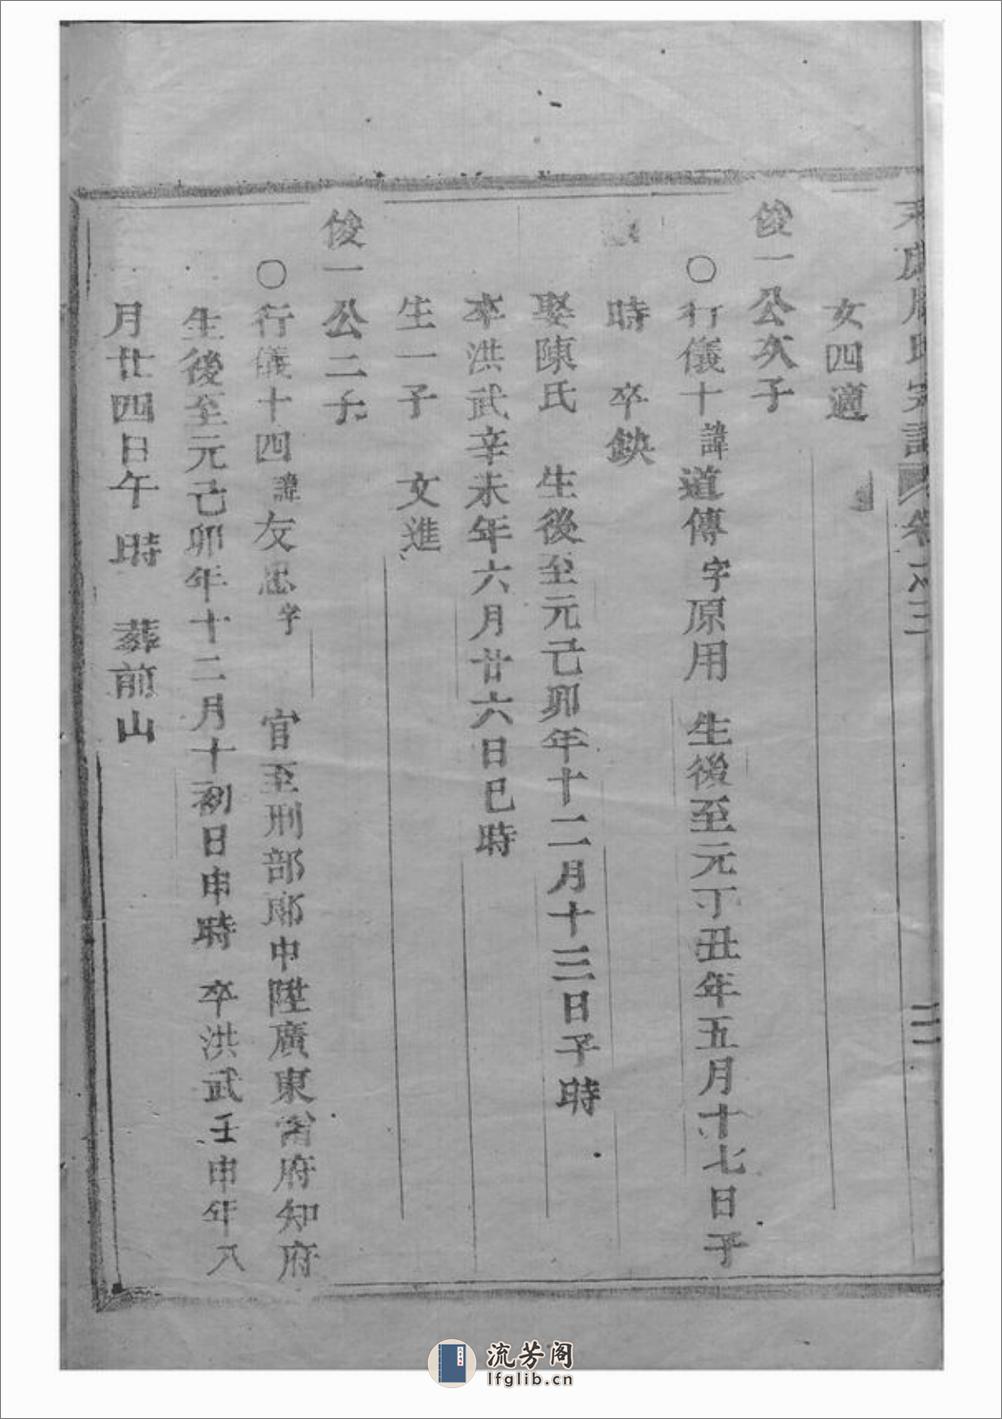 周氏宗譜 卷之三
三
女四適
俊一公次子
○行儀十諱道傳字原用 生後至元丁丑年五月十七日子
時 卒缺
娶陳氏 生後至元己卯年十二月十三日子時
卒洪武辛未年六月廿六日巳時
生一子 文進
俊一公二子
○行儀十四諱友忠字 官至刑部郎中陞廣東 府知府
生後至元己卯年十二月十初日申時 卒洪武壬申年八
月廿四日午時 葬前山
流芳阁
lfglib.cn